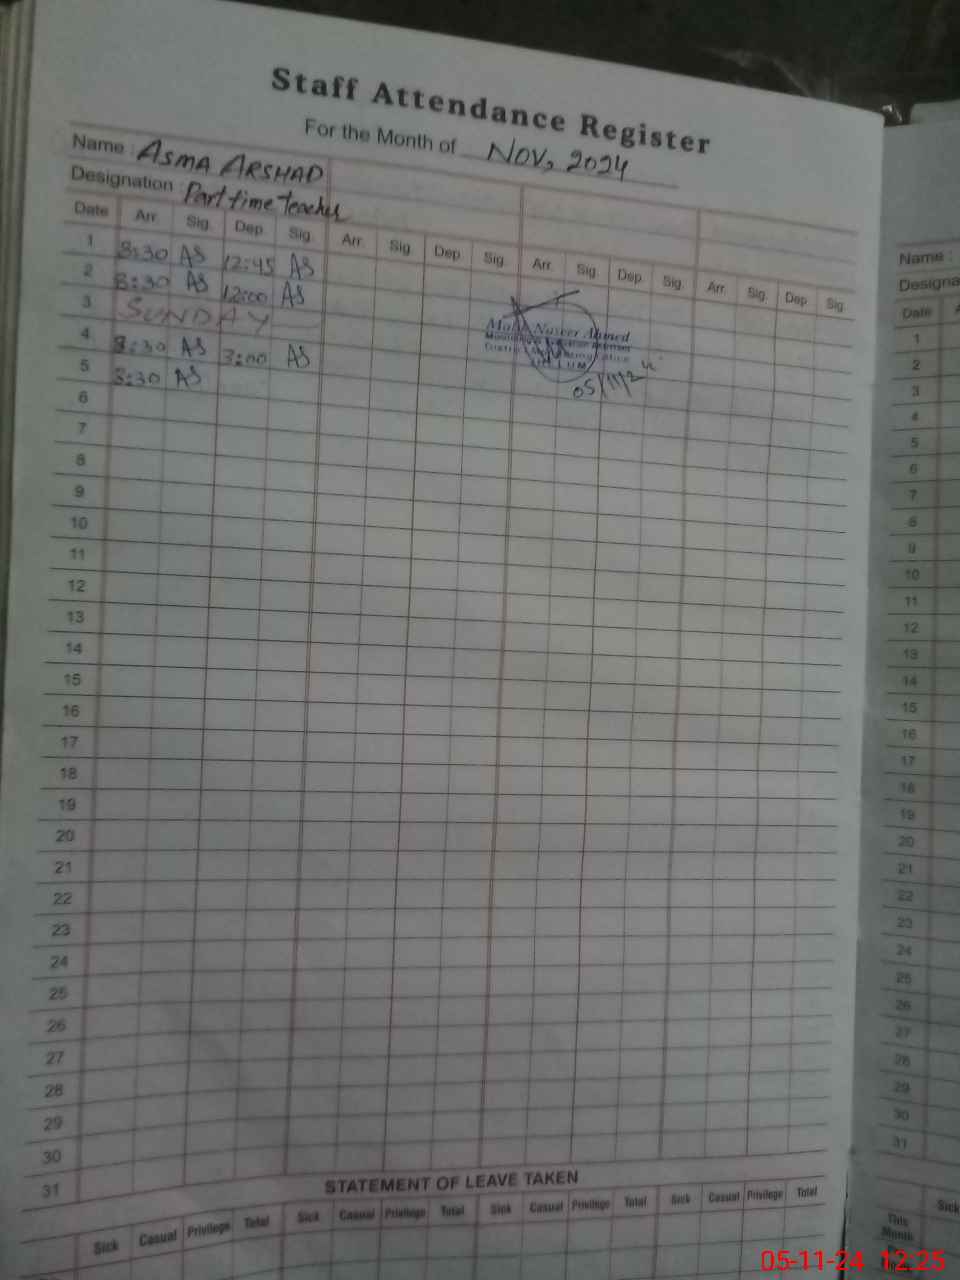 Staff Attendance Register
For the Month of Nov, 2024
Name : ASMA ARSHAD
Designation : Part time teacher
Date Arr. Sig. Dep. Sig. Arr. Sig. Dep. Sig. Arr. Sig. Dep. Sig. Arr. Sig. Dep. Sig.
1 8:30 AS 12:45 AS
2 8:30 AS 12:00 AS
3 SUNDAY
4 8:30 AS 3:00 AS
5 8:30 AS
Naseer Ahmed
05/11/24
6
7
8
9
10
11
12
13
14
15
16
17
18
19
20
21
22
23
24
25
26
27
28
29
30
31
STATEMENT OF LEAVE TAKEN
Sick Casual Privilege Total Sick Casual Privilege Total Sick Casual Privilege Total Sick Casual Privilege Total
Name :
Designa
Date
1
2
3
4
5
6
7
8
9
10
11
12
13
14
15
16
17
18
19
20
21
22
23
24
25
26
27
28
29
30
31
Sick
This
Month
05-11-24 12:25